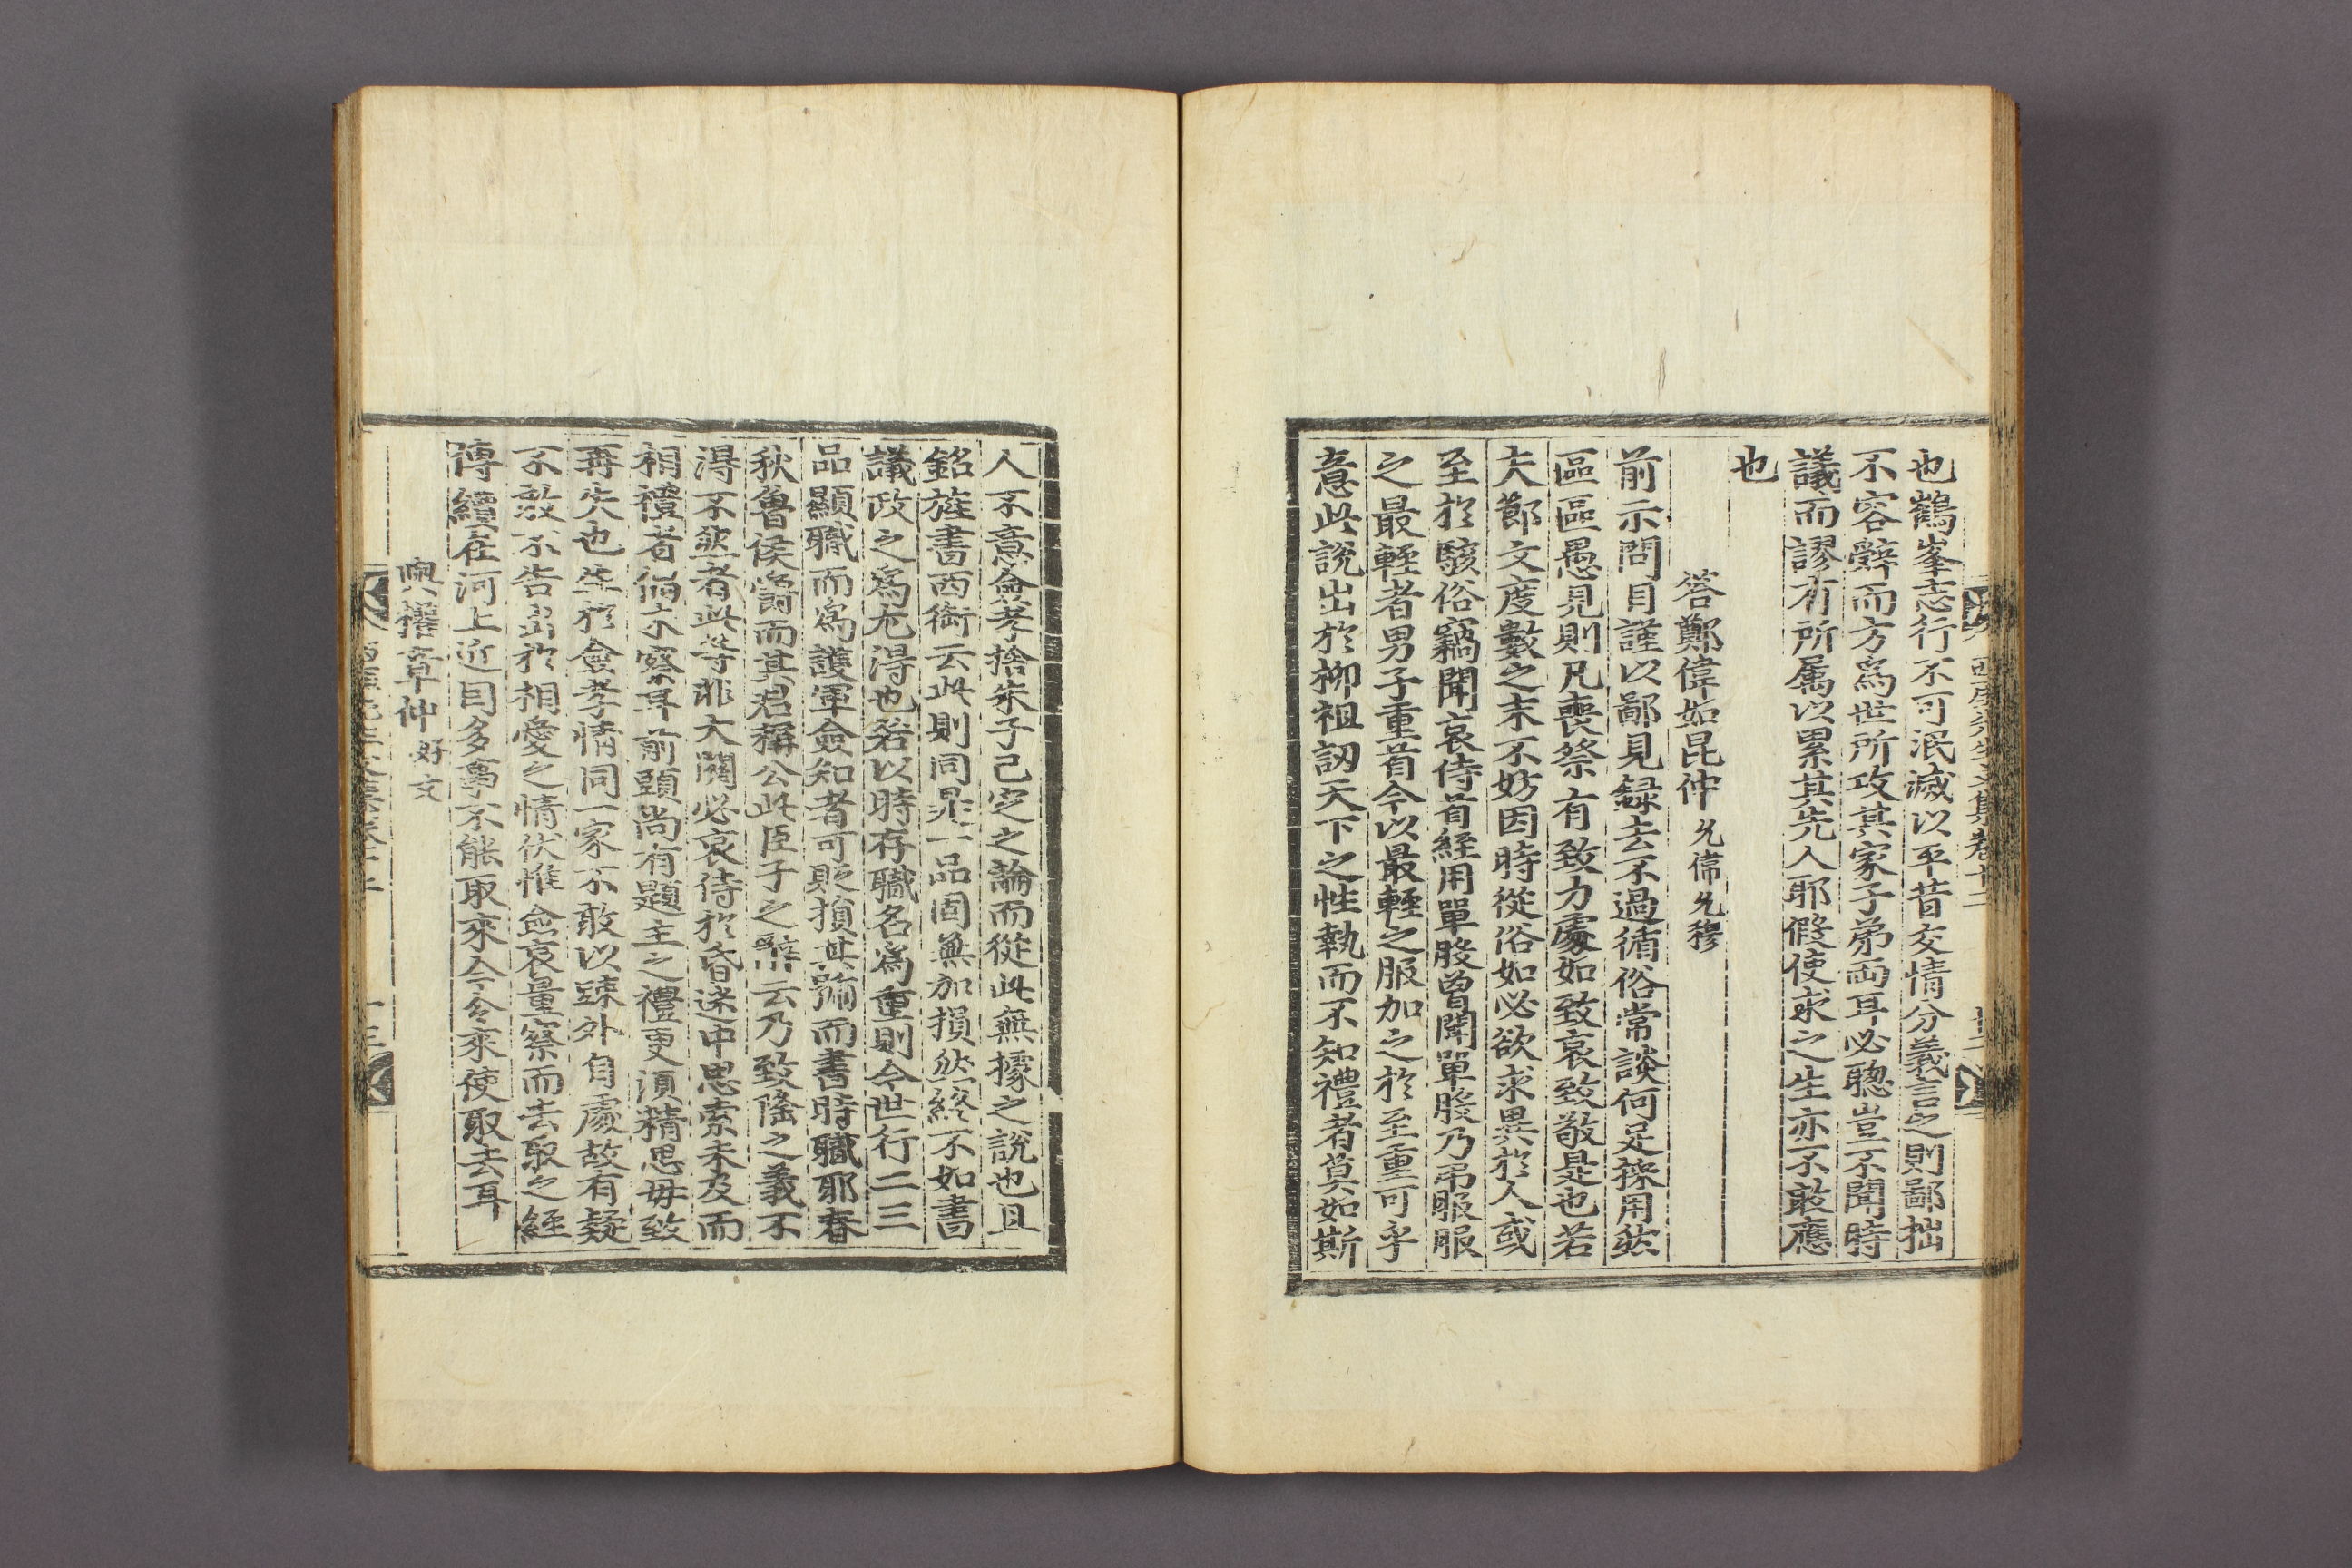 也鶴峯志行不可泯滅以平昔交情分義言之則鄙拙
不容辭而方爲世所攻其家子弟兩耳必聰豈不聞時
議而謬有所屬以累其先人耶假使求之生亦不敢應
也
答鄭偉如昆仲 允偉 允穆
前示問目謹以鄙見錄去不過循俗常談何足採用然
區區愚見則凡喪祭有致力處如致哀致敬是也若
夫節文度數之末不妨因時從俗如必欲求異於人或
至於駭俗竊聞哀侍首絰用單股曾聞單股乃弔服服
之最輕者男子重首今以最輕之服加之於至重可乎
意此說出於柳祖訒天下之性執而不知禮者莫如斯
人不意僉孝捨朱子已定之論而從此無據之說也且
銘旌書西銜云此則同是一品固無加損然終不如書
議政之爲尤得也若以時存職名爲重則今世行二三
品顯職而爲護軍僉知者可貶損其號而書時職耶春
秋魯侯爵而其君稱公此臣子之辭云乃致隆之義不
得不然者此等非大關必哀侍於昏迷中思索未及而
相禮者偶不察耳前頭尙有題主之禮更須精思毋致
再失也生於僉孝情同一家不敢以踈外自處故有疑
不敢不告出於相愛之情伏惟僉哀量察而去取之經
傳續在河上近因多事不能取來今令來使取去耳
與權章仲 好文
西厓先生文集卷十二